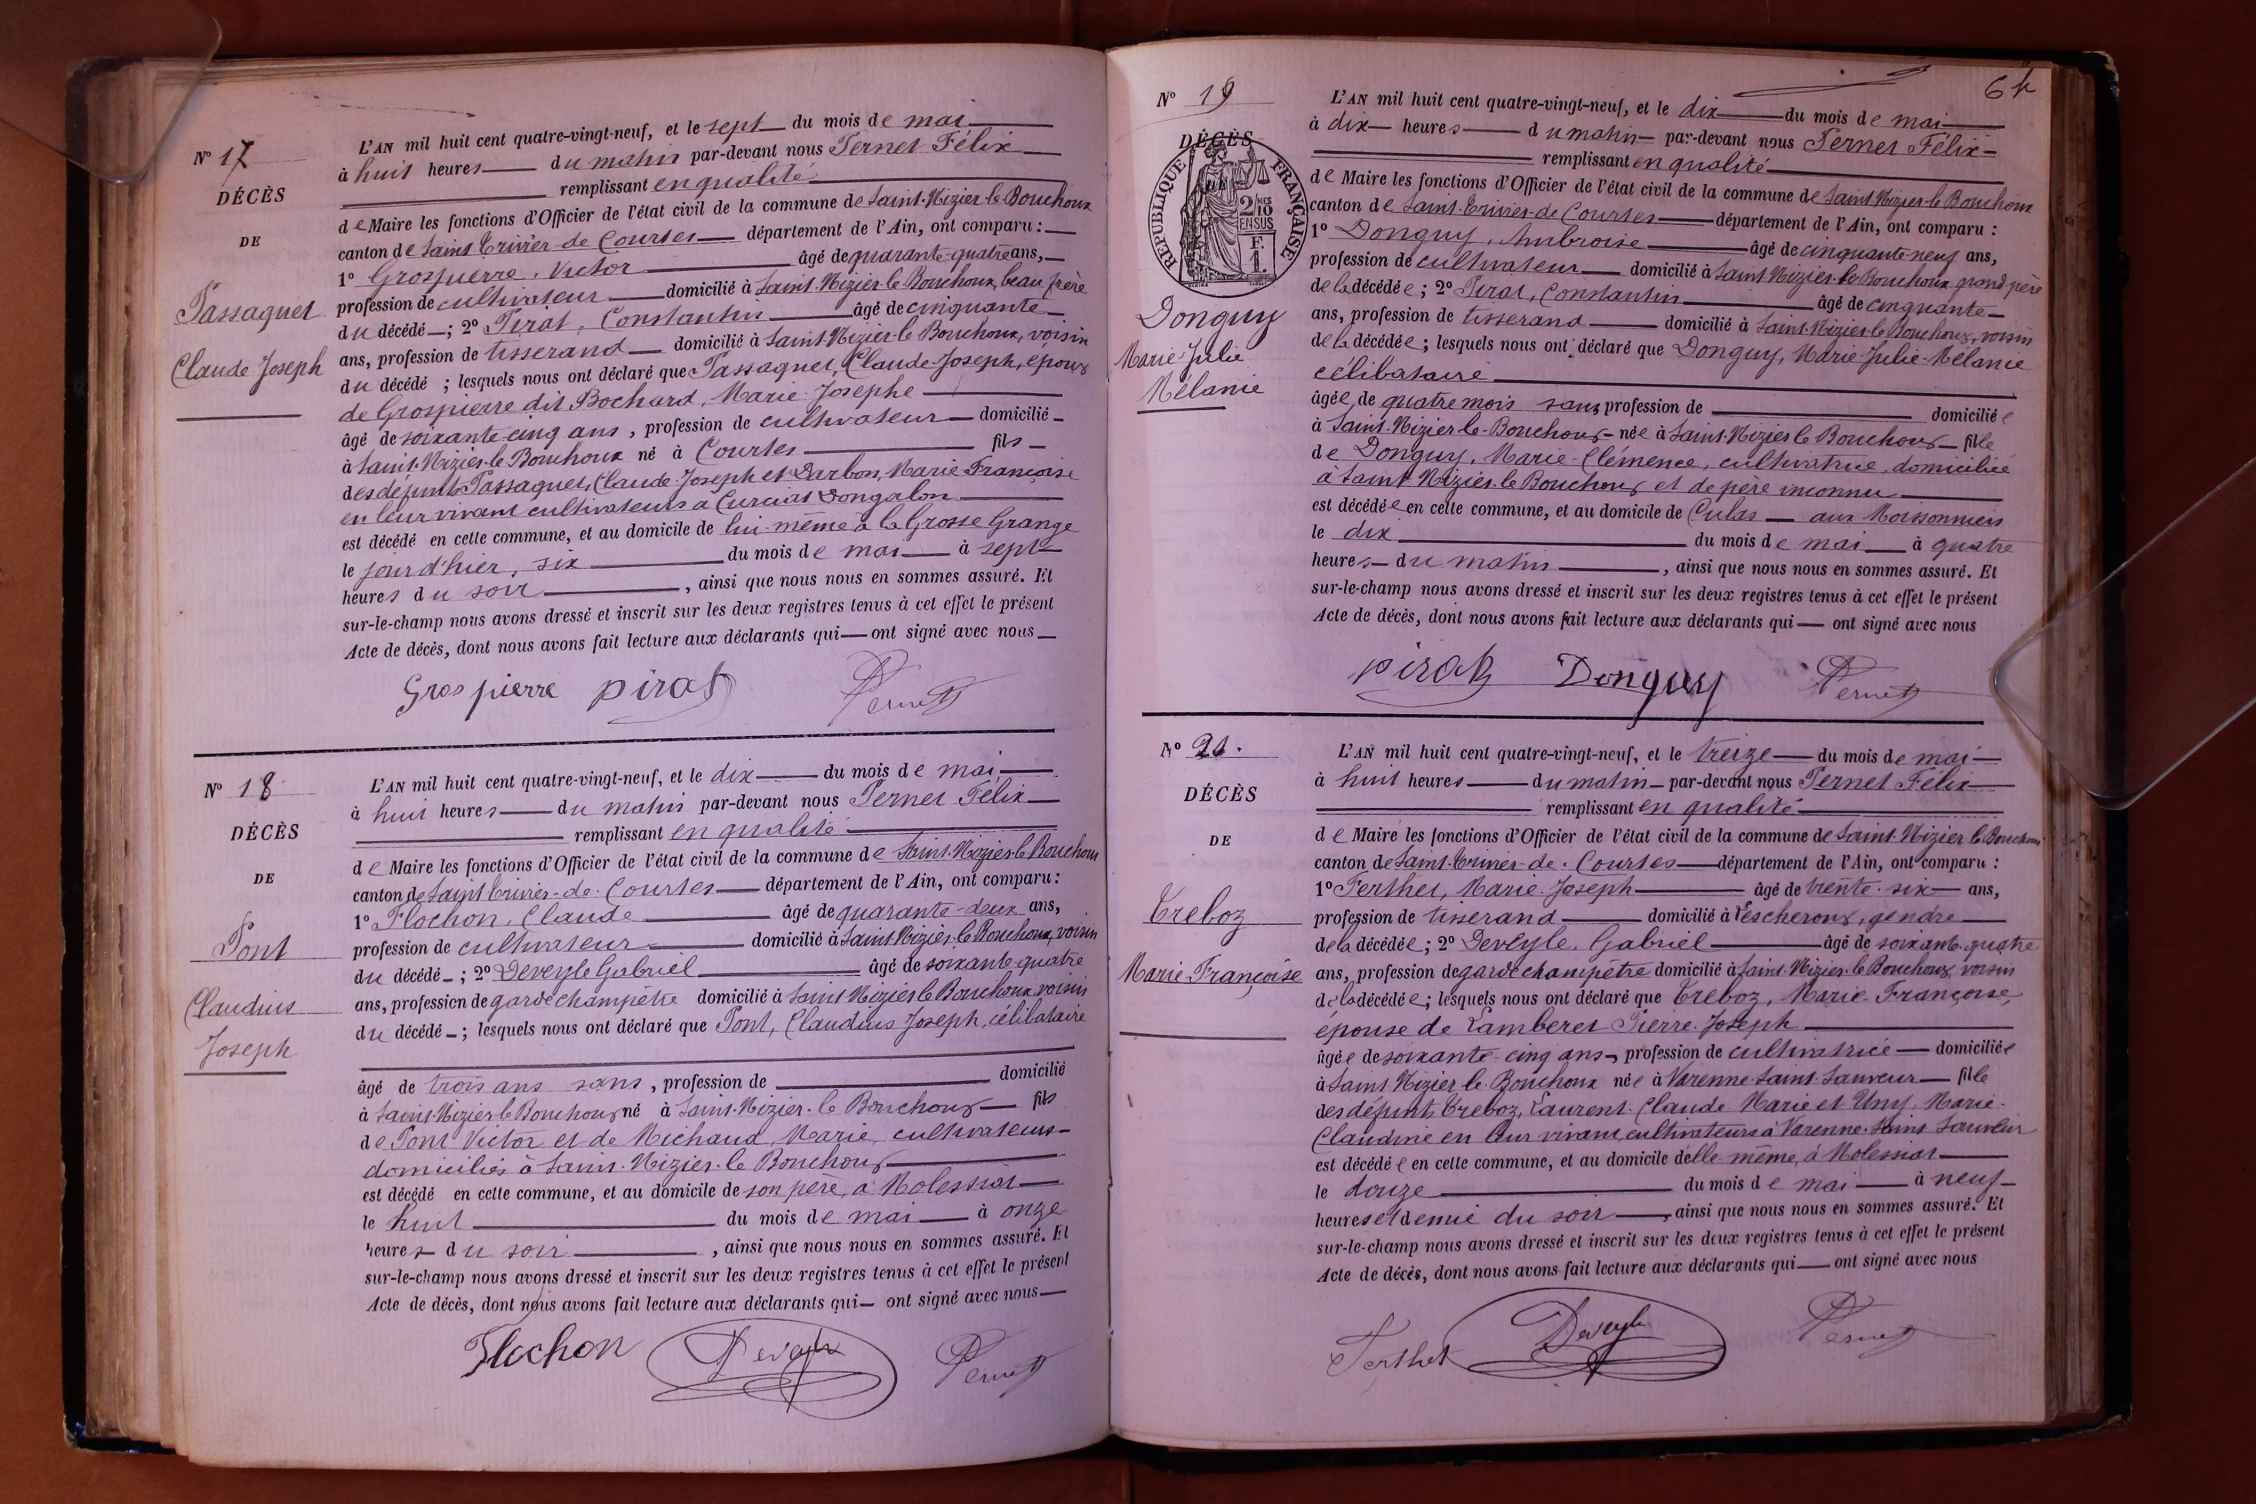 N° 17
DÉCÈS
DE
Passaquet
Claude Joseph
L'AN mil huit cent quatre-vingt-neuf, et le sept du mois de mai
à huit heures du matin par-devant nous Pernet Félix
remplissant en qualité
de Maire les fonctions d'Officier de l'état civil de la commune de Saint-Nizier-le-Bouchoux
canton de Saint-Trivier-de-Courtes département de l'Ain, ont comparu :
1° Grospierre, Victor âgé de quarante-quatre ans,
profession de cultivateur domicilié à Saint-Nizier-le-Bouchoux, beau frère
du décédé ; 2° Pirat, Constantin âgé de cinquante
ans, profession de tisserand domicilié à Saint-Nizier-le-Bouchoux, voisin
du décédé ; lesquels nous ont déclaré que Passaquet, Claude-Joseph, époux
de Grospierre dit Bochard, Marie-Josephe
âgé de soixante-cinq ans, profession de cultivateur domicilié
à Saint-Nizier-le-Bouchoux né à Courtes fils
des défunts Passaquet, Claude-Joseph et Darbon, Marie Françoise
en leur vivant cultivateurs à Curciat Dongalon
est décédé en cette commune, et au domicile de lui-même à la Grosse Grange
le jour d'hier, six du mois de mai à sept
heures du soir, ainsi que nous nous en sommes assuré. Et
sur-le-champ nous avons dressé et inscrit sur les deux registres tenus à cet effet le présent
Acte de décès, dont nous avons fait lecture aux déclarants qui ont signé avec nous
Grospierre Pirat Pernet
N° 18
DÉCÈS
DE
Pont
Claudius
Joseph
L'AN mil huit cent quatre-vingt-neuf, et le dix du mois de mai
à huit heures du matin par-devant nous Pernet Félix
remplissant en qualité
de Maire les fonctions d'Officier de l'état civil de la commune de Saint-Nizier-le-Bouchoux
canton de Saint-Trivier-de-Courtes département de l'Ain, ont comparu :
1° Flochon, Claude âgé de quarante-deux ans,
profession de cultivateur domicilié à Saint-Nizier-le-Bouchoux, voisin
du décédé ; 2° Deveyle Gabriel âgé de soixante-quatre
ans, profession de garde champêtre domicilié à Saint Nizier le Bouchoux voisin
du décédé ; lesquels nous ont déclaré que Pont, Claudius Joseph, célibataire
âgé de trois ans sans, profession de domicilié
à Saint-Nizier-le-Bouchoux né à Saint-Nizier-le-Bouchoux fils
de Pont Victor et de Michaud, Marie, cultivateurs
domiciliés à Saint-Nizier-le-Bouchoux
est décédé en cette commune, et au domicile de son père, à Molessiat
le huit du mois de mai à onze
heures du soir, ainsi que nous nous en sommes assuré. Et
sur-le-champ nous avons dressé et inscrit sur les deux registres tenus à cet effet le présent
Acte de décès, dont nous avons fait lecture aux déclarants qui ont signé avec nous
Flochon Deveyle Pernet
N° 19
DÉCÈS
RÉPUBLIQUE FRANÇAISE
2/10 EN SUS
F. 1.
Donguy
Marie-Julie
Mélanie
L'AN mil huit cent quatre-vingt-neuf, et le dix du mois de mai
à dix heures du matin par-devant nous Pernet Félix
remplissant en qualité
de Maire les fonctions d'Officier de l'état civil de la commune de Saint Nizier-le Bouchoux
canton de Saint-Trivier-de Courtes département de l'Ain, ont comparu :
1° Donguy, Ambroise âgé de cinquante-neuf ans,
profession de cultivateur domicilié à Saint-Nizier-le-Bouchoux, grand père
de la décédée ; 2° Pirat, Constantin âgé de cinquante
ans, profession de tisserand domicilié à Saint-Nizier-le-Bouchoux, voisin
de la décédée ; lesquels nous ont déclaré que Donguy, Marie-Julie-Mélanie
célibataire
âgée de quatre mois sans profession de domiciliée
à Saint-Nizier-le-Bouchoux née à Saint-Nizier le Bouchoux fille
de Donguy, Marie-Clémence, cultivatrice, domiciliée
à Saint Nizier-le Bouchoux et de père inconnu
est décédée en cette commune, et au domicile de Culas aux Moissonniers
le dix du mois de mai à quatre
heures du matin, ainsi que nous nous en sommes assuré. Et
sur-le-champ nous avons dressé et inscrit sur les deux registres tenus à cet effet le présent
Acte de décès, dont nous avons fait lecture aux déclarants qui ont signé avec nous
Pirat Donguy Pernet
DÉCÈS
DE
Treboz
Marie Françoise
L'AN mil huit cent quatre-vingt-neuf, et le treize du mois de mai
à huit heures du matin par-devant nous Pernet Félix
remplissant en qualité
de Maire les fonctions d'Officier de l'état civil de la commune de Saint-Nizier le Bouchoux
canton de Saint-Trivier-de-Courtes département de l'Ain, ont comparu :
1° Ferthet, Marie-Joseph âgé de trente-six ans,
profession de tisserand domicilié à Lescheroux, gendre
de la décédée ; 2° Deveyle, Gabriel âgé de soixante-quatre
ans, profession de garde champêtre domicilié à Saint-Nizier-le-Bouchoux, voisin
de la décédée ; lesquels nous ont déclaré que Treboz, Marie-Françoise,
épouse de Lamberet Pierre-Joseph
âgée de soixante-cinq ans, profession de cultivatrice domiciliée
à Saint Nizier-le-Bouchoux née à Varenne-Saint-Sauveur fille
des défunts Treboz, Laurent-Claude Marie et Uny, Marie-
Claudine en leur vivant, cultivateurs à Varenne-Saint Sauveur
est décédée en cette commune, et au domicile d'elle même, à Molessiat
le douze du mois de mai à neuf
heures et demie du soir, ainsi que nous nous en sommes assuré. Et
sur-le-champ nous avons dressé et inscrit sur les deux registres tenus à cet effet le présent
Acte de décès, dont nous avons fait lecture aux déclarants qui ont signé avec nous
Ferthet Deveyle Pernet